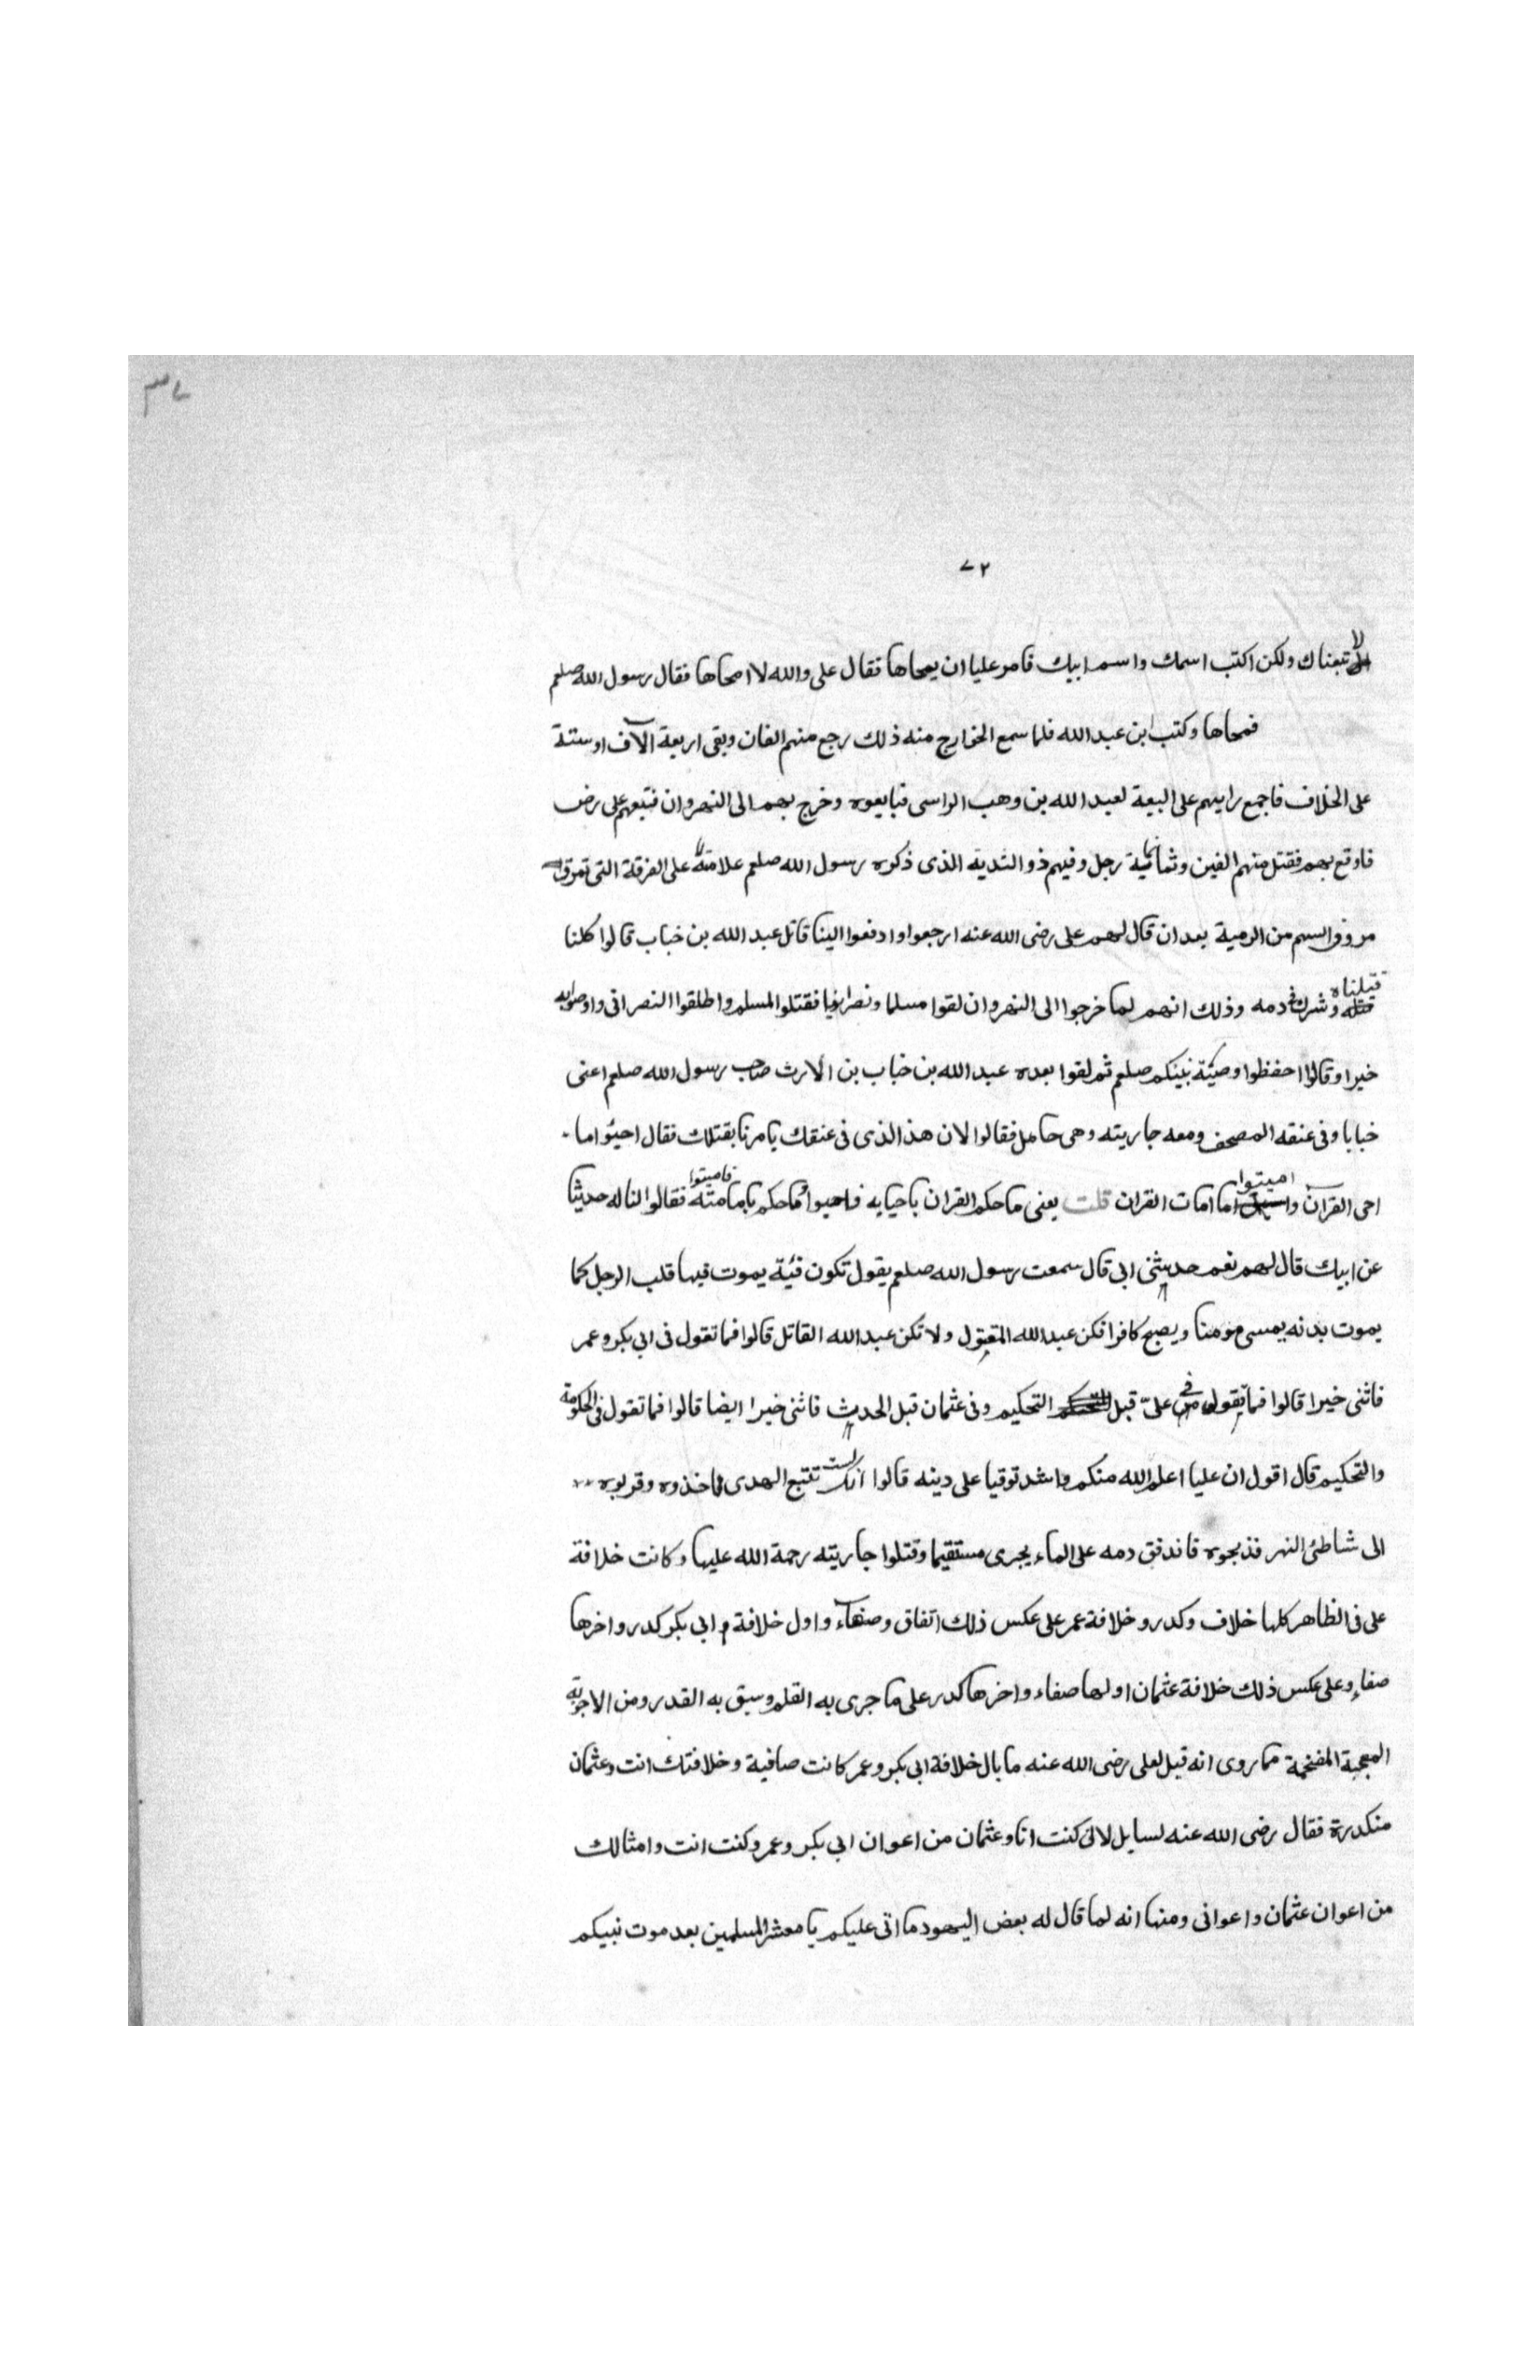 ٣٧
٧٢
لا تبعناك ولكن اكتب اسمك واسم ابيك فامر عليا ان يمحاها فقال على والله لا امحاها فقال رسول الله صلعم
فمحاها وكتب ابن عبد الله فلما سمع الخوارج منه ذلك رجع منهم الفان وبقى اربعة الآف او ستة
على الخلاف فاجمع رايهم على البيعة لعبد الله بن وهب الراسى فبايعوه وخرج بهم الى النهروان فتبعهم على رض
فاوقع بهم فقتل منهم الفين وثمانمائية رجل وفيهم ذو الثدية الذى ذكره رسول الله صلعم علامة على الفرقة التى تمرق
مروق السهم من الرمية بعد ان قال لهم على رضى الله عنه ارجعوا وادفعوا الينا قاتل عبد الله بن خباب قالوا كلنا
قتلناه وشرك فى دمه وذلك انهم لما خرجوا الى النهروان لقوا مسلما ونصرانيا فقتلوا المسلم واطلقوا النصرانى واوصوا به
خيرا وقالوا احفظوا وصية نبيكم صلعم ثم لقوا بعده عبد الله بن خباب بن الارث صاحب رسول الله صلعم اعنى
خبابا وفى عنقه المصحف ومعه جاريته وهى حامل فقالوا لان هذ الذى فى عنقك يامرنا بقتلك فقال احيوا ما
احى القرآن واميتوا ما امات القران قلت يعنى ما حكم القران باحيايه فاحيوا وما حكم باماتته فاميتوا فقالوا لنا له حديثا
عن ابيك قال لهم نعم حديثنى ابى قال سمعت رسول الله صلعم يقول تكون فئية يموت فيها قلب الرجل كما
يموت بدنه يمسى مومنا ويصبح كافرا فكن عبد الله المقتول ولا تكن عبد الله القاتل قالوا فما تقول فى ابى بكر وعمر
فاثنى خيرا قالوا فما تقول فى علىّ قبل التحكيم وفى عثمان قبل الحديث فاثنى خيرا ايضا قالوا فما تقول فى الحكومة
والتحكيم قال اقول ان عليا اعلم الله منكم واشد توقيا على دينه قالوا انك لست تتبع الهدى فاخذوه وقربوه
الى شاطئ النهر فذبحوه فاندفق دمه على الماء يجرى مستقيما وقتلوا جاريته رحمة الله عليها وكانت خلافة
على فى الظاهر كلها خلاف وكدر وخلافة عمر على عكس ذلك اتفاق وصفاء واول خلافة ابى بكر كدر واخرها
صفاء وعلى عكس ذلك خلافة عثمان اولها صفاء واخرها كدر على ما جرى به القلم وسبق به القدر ومن الاجوبة
المعجبة المفخمة ما روى انه قيل لعلى رضى الله عنه ما بال خلافة ابى بكر وعمر كانت صافية وخلافتك انت وعثمان
منكدرة فقال رضى الله عنه لسايل لانى كنت انا وعثمان من اعوان ابى بكر وعمر وكنت انت وامثالك
من اعوان عثمان واعوانى ومنها انه لما قال له بعض اليهود ما اتى عليكم يا معشر المسلمين بعد موت نبيكم